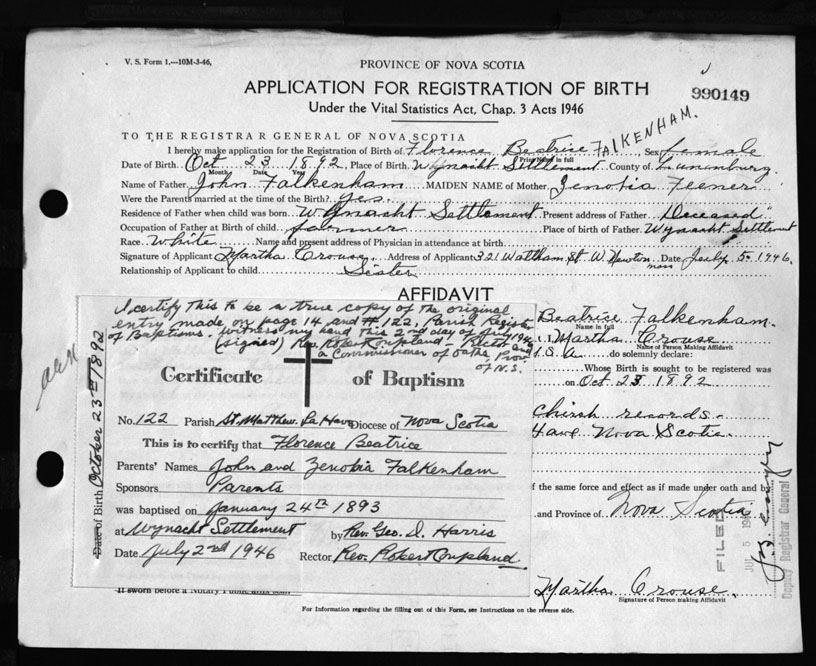 V. S. Form 1.—10M-3-46,
PROVINCE OF NOVA SCOTIA
APPLICATION FOR REGISTRATION OF BIRTH
990149
Under the Vital Statistics Act, Chap. 3 Acts 1946
TO THE REGISTRAR GENERAL OF NOVA SCOTIA
I hereby make application for the Registration of Birth of Florence Beatrice FALKENHAM. Sex female
Print Name in full
Date of Birth Oct 23 1892, Place of Birth Wynacht Settlement County of Lunenburg
Month Date Year
Name of Father John Falkenham MAIDEN NAME of Mother Zenobia Feener
Were the Parents married at the time of the Birth? Yes.
Residence of Father when child was born Wynacht Settlement Present address of Father Deceased
Occupation of Father at Birth of child farmer Place of birth of Father Wynacht Settlement
Race White Name and present address of Physician in attendance at birth
Signature of Applicant Martha Crouse Address of Applicant 321 Waltham St W Newton mass Date July 5 1946.
Relationship of Applicant to child Sister
AFFIDAVIT
I certify this to be a true copy of the original
entry made on page 14 and #122, Parish Register
of Baptisms. Witness my hand this 2nd day of July 1946
(signed) Rev. Robert Coupland - Rector and
a Commissioner of Oaths Prov.
of N.S.
Certificate of Baptism
No. 122 Parish St. Matthew La Have Diocese of Nova Scotia
This is to certify that Florence Beatrice
Parents' Names John and Zenobia Falkenham
Sponsors Parents
was baptised on January 24th 1893
at Wynacht Settlement by Rev. Geo. D. Harris
Date July 2nd 1946 Rector Rev. Robert Coupland.
Date of Birth October 23rd 1892
Beatrice Falkenham.
Name in full
I, Martha Crouse
Name of Person Making Affidavit
U.S.A. do solemnly declare:
Whose Birth is sought to be registered was
on Oct 23 1892
Chirsh records.
Have Nova Scotia.
of the same force and effect as if made under oath and by
and Province of Nova Scotia
FILED
JUL 5 194
Deputy Registrar General
Martha Crouse
Signature of Person making Affidavit
If sworn before a Notary Public
For Information regarding the filling out of this Form, see Instructions on the reverse side.